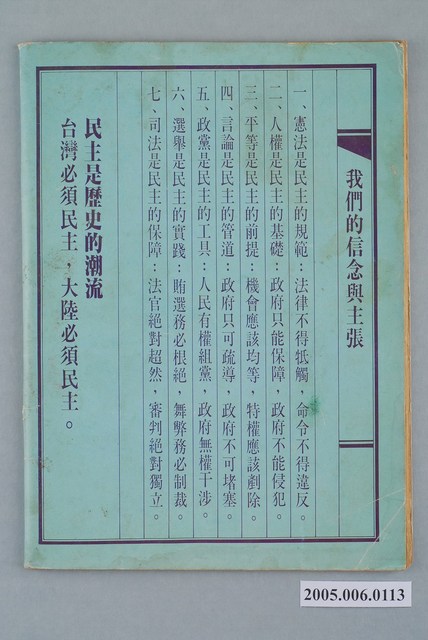 我們的信念與主張
一、憲法是民主的規範：法律不得牴觸，命令不得違反。
二、人權是民主的基礎：政府只能保障，政府不能侵犯。
三、平等是民主的前提：機會應該均等，特權應該剷除。
四、言論是民主的管道：政府只可疏導，政府不可堵塞。
五、政黨是民主的工具：人民有權組黨，政府無權干涉。
六、選舉是民主的實踐：賄選務必根絕，舞弊務必制裁。
七、司法是民主的保障：法官絕對超然，審判絕對獨立。
民主是歷史的潮流
台灣必須民主，大陸必須民主。
2005.006.0113